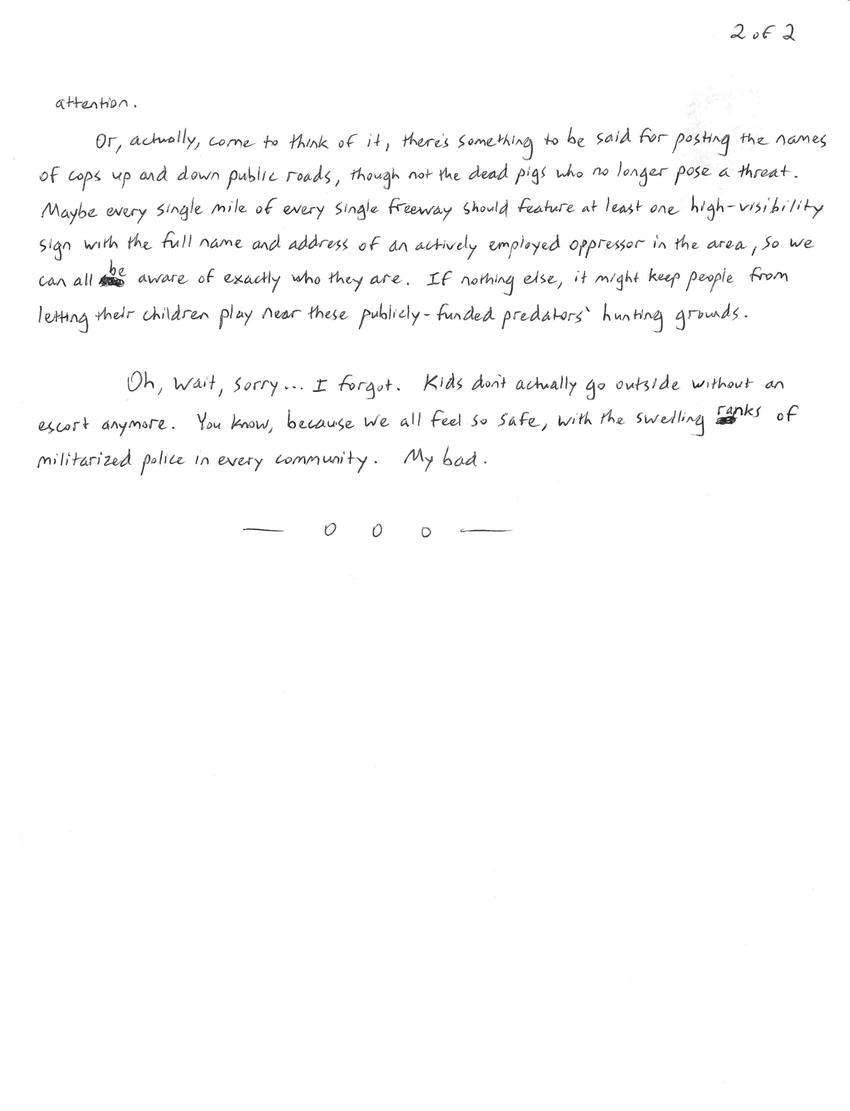 2 of 2
attention.
Or, actually, come to think of it, there's something to be said for posting the names
of cops up and down public roads, though not the dead pigs who no longer pose a threat.
Maybe every single mile of every single freeway should feature at least one high-visibility
sign with the full name and address of an actively employed oppressor in the area, so we
can all be aware of exactly who they are. If nothing else, it might keep people from
letting their children play near these publicly-funded predators' hunting grounds.
Oh, wait, sorry... I forgot. Kids don't actually go outside without an
escort anymore. You know, because we all feel so safe, with the swelling ranks of
militarized police in every community. My bad.
— 0 0 0 —